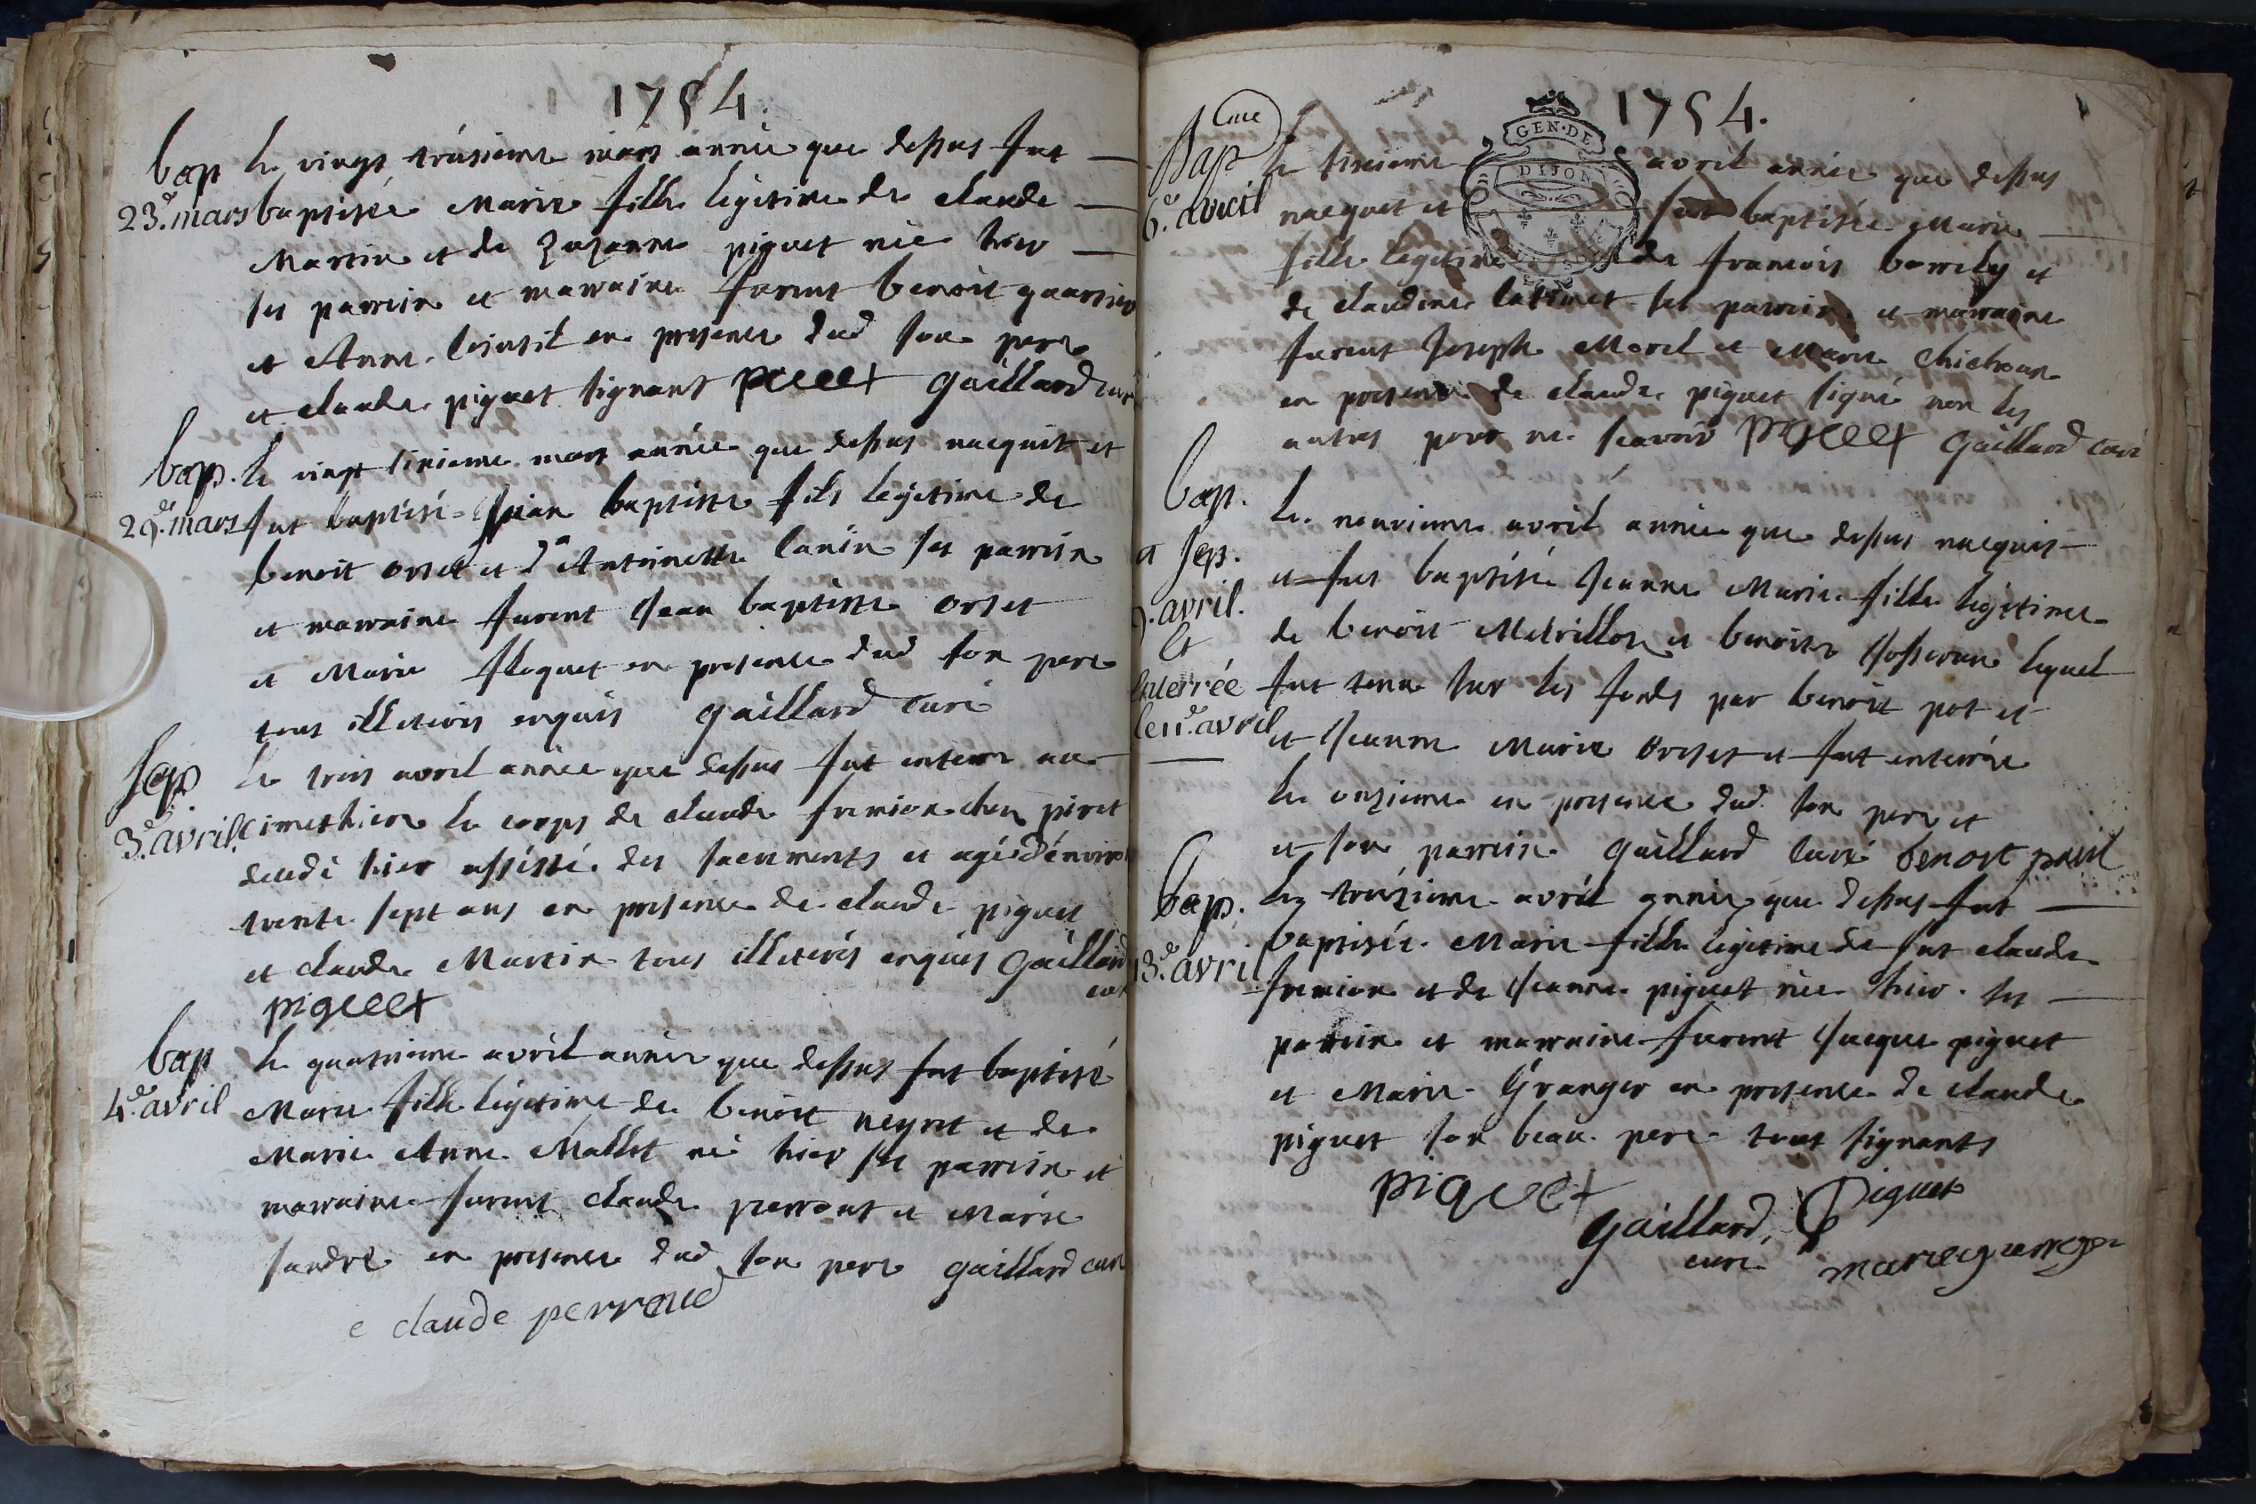 1754.
bap le vingt troisieme mars année que dessus fut
23e. mars baptisée Marie fille legitime de claude
Martin et de Zuzanne piquet née hier
ses parrein et marraine furent benoit
et Anne en presence dud son pere
et claude piquet signant piquet gaillard curé
bap. le vingt sixieme mars année que dessus nacquit et
mars fut baptisé Jean baptiste fils legitime de
benoit orset et d Antoinette lanin ses parrein
et marraine furent Jean baptiste orset
et Marie floquet en presence dud son pere
tous illeterés enquis gaillard curé
sep le trois avril année que dessus fut enterré au
3e. avril. cimethiere le corps de claude fremion chez piret
decedé hier assisté des sacrements et agé d'environ
trente sept ans en presence de claude piquet
et claude Martin tous illeterés enquis gaillard
curé
piquet
bap le quatrieme avril année que dessus fut baptisé
4e. avril Marie fille legitime de benoit neyret et de
Marie Anne Mallet né hier ses parrein et
marraine furent claude perront et Marie
en presence dud son pere gaillard curé
claude perroud
1754.
GEN. DE
DIJON
bap le sixieme avril année que dessus
6e. avril nacquit et fut baptisée Marie
fille legitime de francois et
de claudine ses parrein et marraine
furent Joseph Morel et Marie
en presence de claude piquet signé non les
autres pour ne scavoir piquet gaillard curé
bap. le neuvieme avril année que dessus nacquis
et sep. et fut baptisée Jeanne Marie fille legitime
9. avril. de benoit et benoite lequel
Et
enterrée fut tenu sur les fonds par benoit pot et
le 11e. avril et Jeanne Marie orset et fut enterrée
le onzieme en presence dud son pere et
et son parrein gaillard curé benoit
bap. le treizieme avril année que dessus fut
13e. avril baptisée Marie fille legitime de fut claude
fremion et de Jeanne piquet née hier ses
parrein et marraine furent Jacque piquet
et Marie Granger en presence de claude
piquet son beau pere tous signants
piquet
gaillard, Piquet
curé